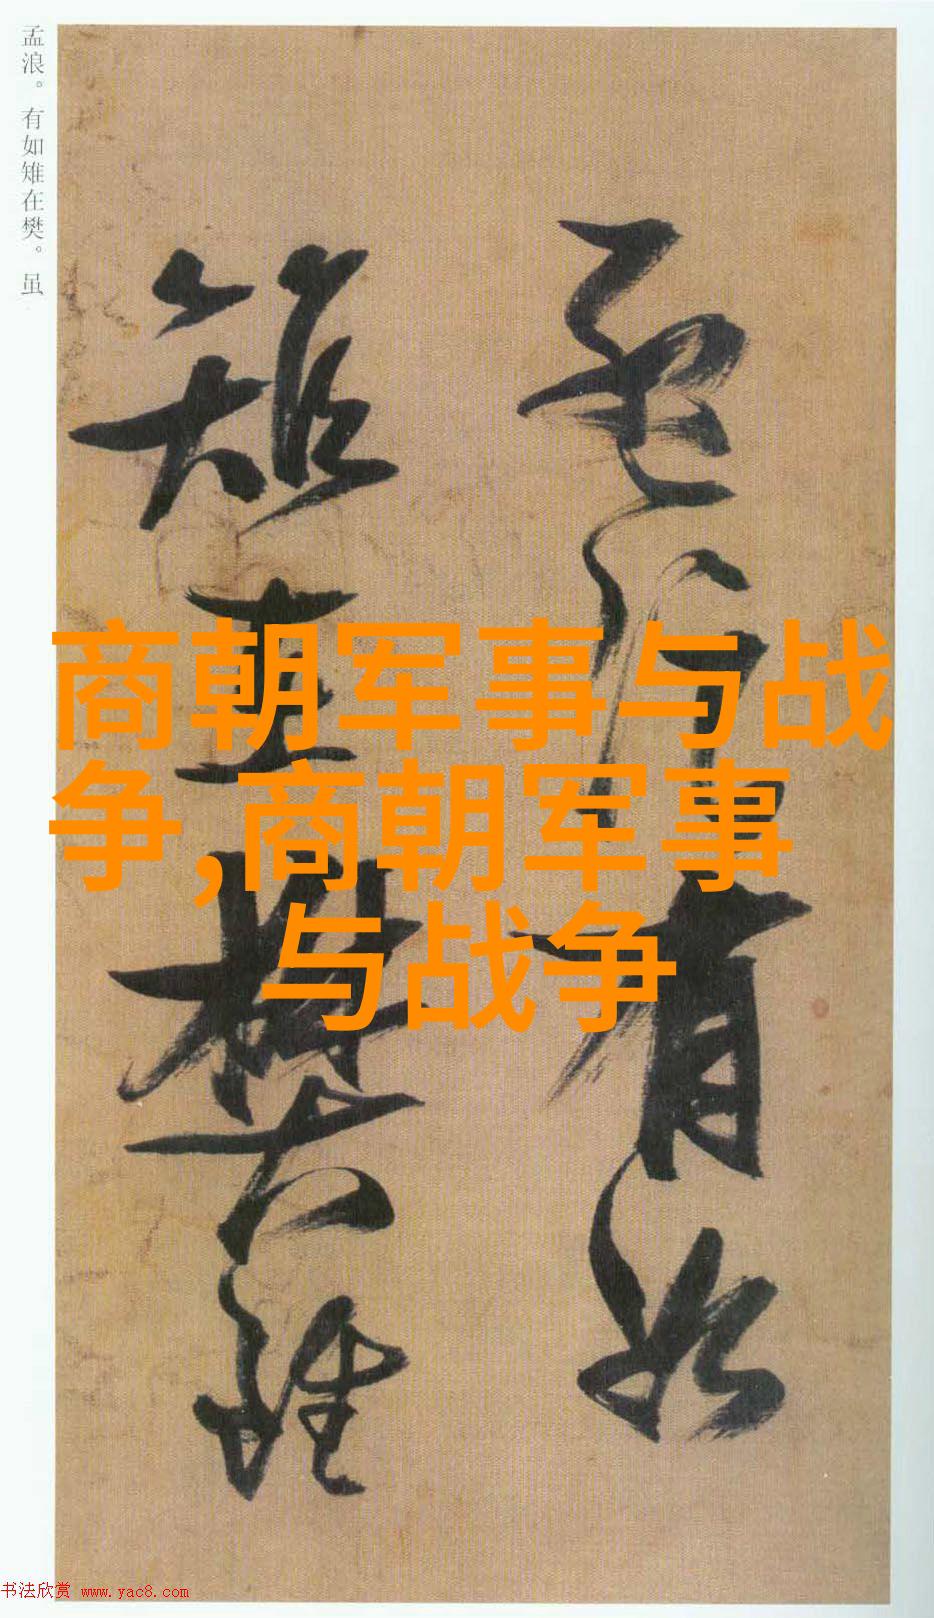 孟浪。有如雉在樊。虽
孟浪有如
雉在樊虽
商朝军事与战
争,商朝军事
与战争
书法欣赏 www.yac8.com